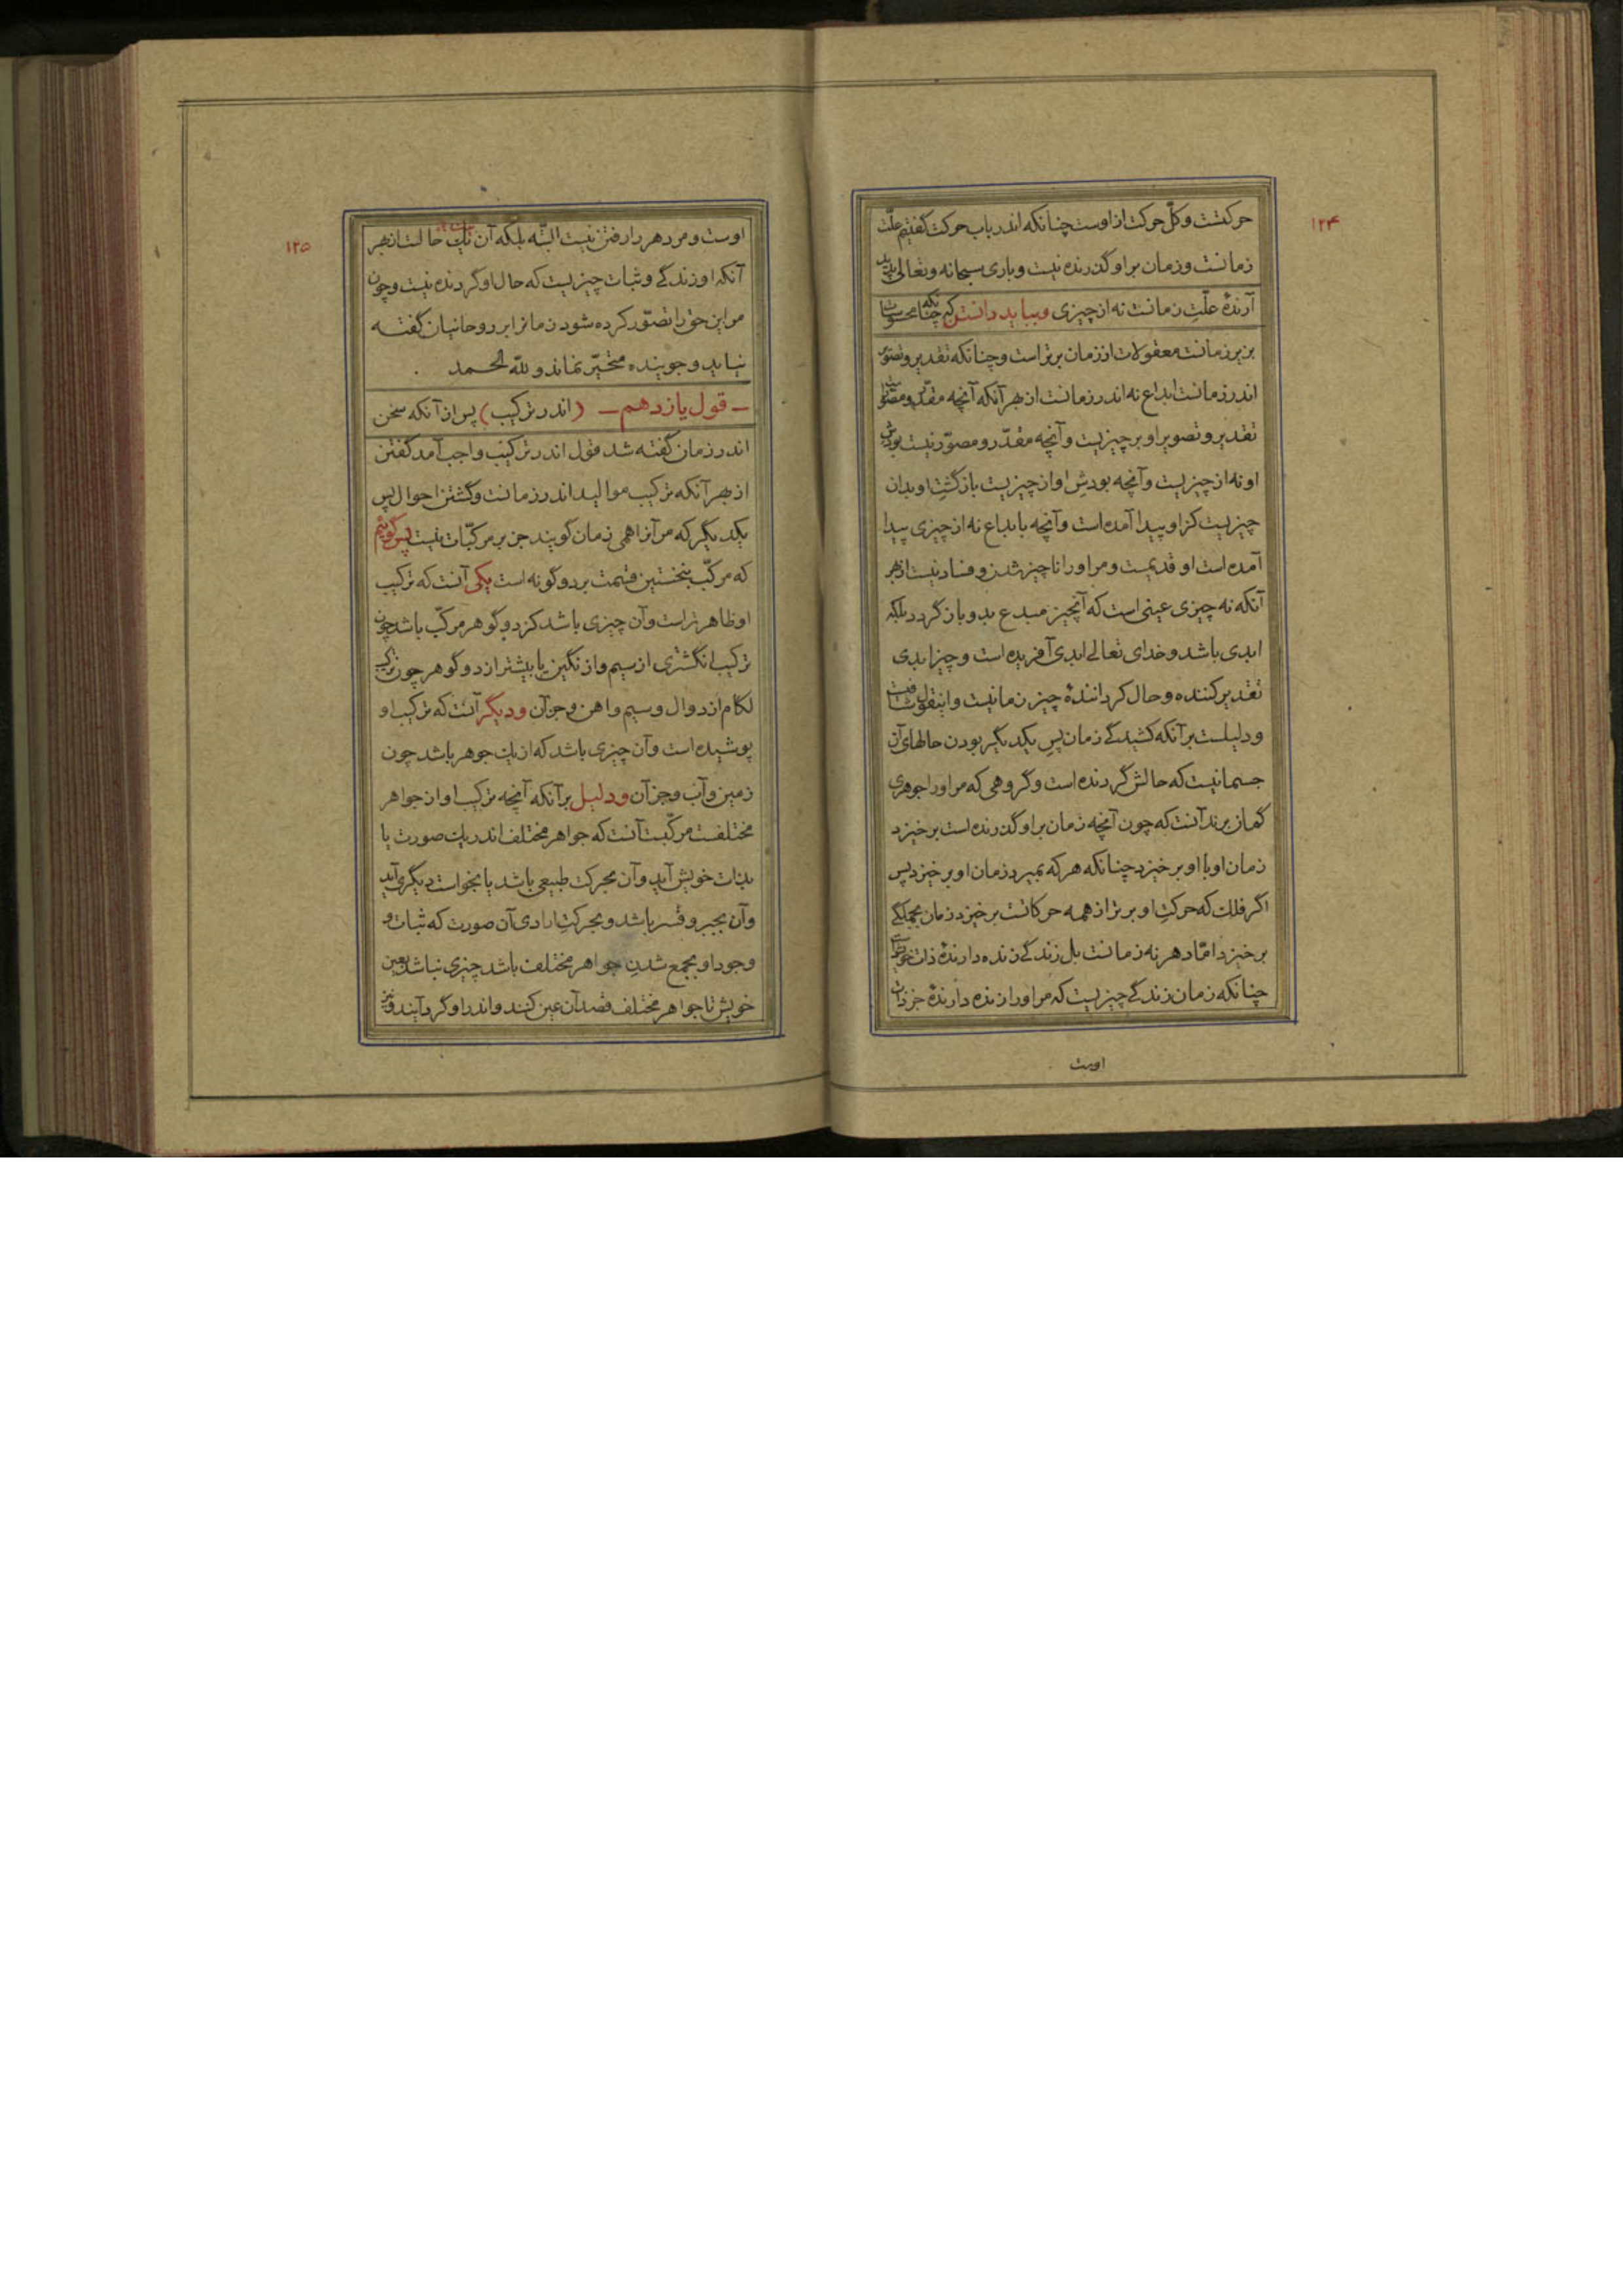 ۱۲۴
حرکتست و کلّ حرکت از اوست چنانکه اندر باب حرکت گفتیم علّت
زمانست و زمان بر او گذرنده نیست و باری سبحانه و تعالی پدید
آرندهٔ علّتِ زمانست نه از چیزی و بباید دانستن که چنانکه محسوسات
بزیر زمانست معقولات از زمان برتر است و چنانکه تقدیر و تصویر
اندر زمانست ابداع نه اندر زمانست از بهر آنکه آنچه مقدّر و مصوّر است
تقدیر و تصویر او بر چیزیست و آنچه مقدّر و مصوّر نیست بودش
او نه از چیزیست و آنچه بودشِ او از چیزیست بازگشتِ او بدان
چیزیست کز او پیدا آمده است و آنچه بابداع نه از چیزی پیدا
آمده است او قدیمست و مر او را ناچیز شدن و فساد نیست از بهر
آنکه نه چیزی عینی است که آنچیز مبدع بدو بازگردد بلکه
ابدی باشد و خدای تعالی ابدی آفریده است و چیز ابدی
تقدیر کننده و حال گردانندهٔ چیز زمانیست و اینقول
و دلیلست بر آنکه کشیدگی زمان پس یکدیگر بودن حالهای آن
جسمانیست که حالش گردنده است و گروهی که مر او را جوهری
گمان برند آنست که چون آنچه زمان بر او گذرنده است برخیزد
زمان او با او برخیزد چنانکه هر که بمیرد زمان او برخیزد پس
اگر فلک که حرکتِ او برتر از همه حرکاتست برخیزد زمان بجملگی
برخیزد امّا دهر نه زمانست بل زندگی زنده دارندهٔ ذات خویش است
چنانکه زمان زندگی چیزیست که مر او را زنده دارندهٔ جز ذات
اوست
۱۲۵
اوست و مر دهر را رفتن نیست البتّه بلکه آن یک حالست از بهر
آنکه او زندگی و ثبات چیزیست که حال او گردنده نیست و چون
مر این حق را تصوّر کرده شود زمانرا بر روحانیان گفته
نیاید و جوینده متحیّر نماند و للّه الحمد .
– قول یازدهم – (اندر ترکیب) پس از آنکه سخن
اندر زمان گفته شد قول اندر ترکیب واجب آمد گفتن
از بهر آنکه ترکیب موالید اندر زمانست و گشتن احوال پس
یکدیگر که مر آنرا همی زمان گویند جز بر مرکّبات نیست پس گوئیم
که مرکّب بنخستین قسمت بر دو گونه است یکی آنست که ترکیب
او ظاهرتر است و آن چیزی باشد کز دو گوهر مرکّب باشد چون
ترکیب انگشتری از سیم و از نگین یا بیشتر از دو گوهر چون ترکیب
لگام از دوال و سیم و آهن و جز آن و دیگر آنست که ترکیب او
پوشیده است و آن چیزی باشد که از یک جوهر باشد چون
زمین و آب و جز آن و دلیل بر آنکه آنچه ترکیب او از جواهر
مختلفست مرکّبست آنست که جواهر مختلف اندر یک صورت یا
بذات خویش آید و آن بحرکت طبیعی باشد یا بخواست دیگری آید
و آن بجبر و قسر باشد و بحرکتِ ارادی آن صورت که ثبات و
وجود او بجمع شدنِ جواهر مختلف باشد چیزی نباشد بعین
خویش تا جواهر مختلف قصد آن عین کنند و اندر او گرد آیند و نیز